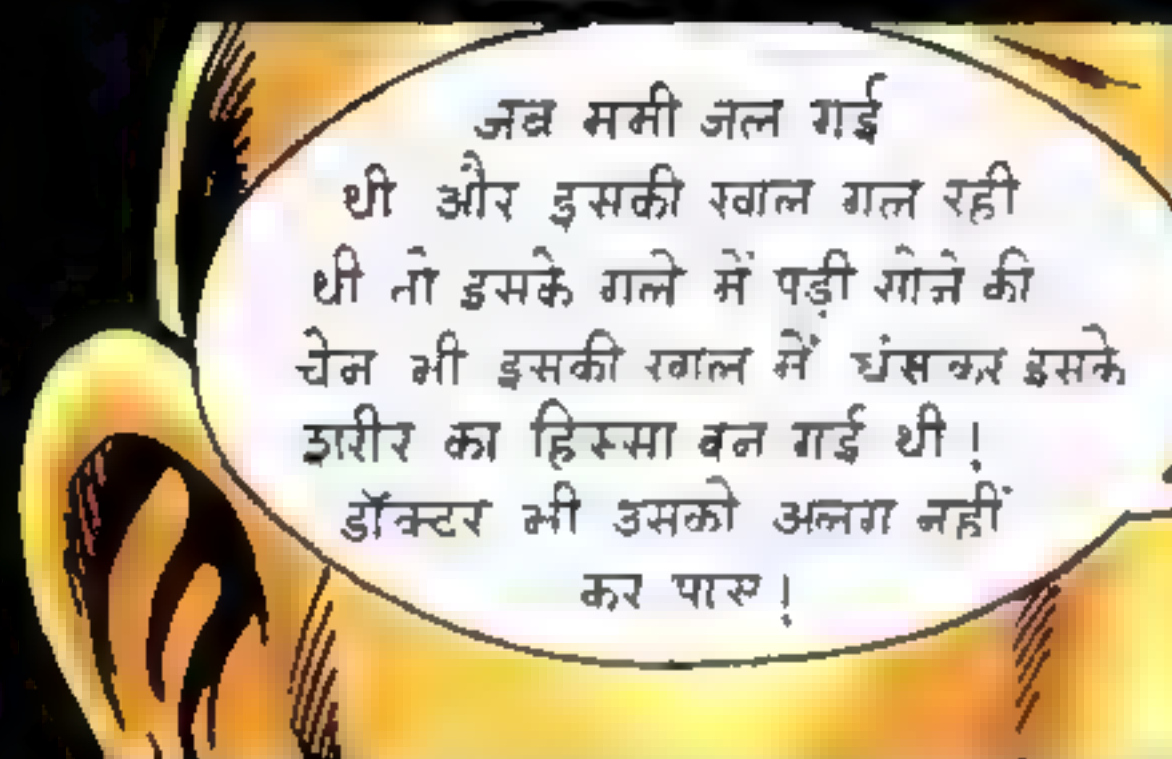 जब ममी जल गई
थी और इसकी खाल गल रही
थी तो इसके गले में पड़ी सोने की
चेन भी इसकी खाल में धंसकर इसके
शरीर का हिस्सा बन गई थी !
डॉक्टर भी उसको अलग नहीं
कर पाए !